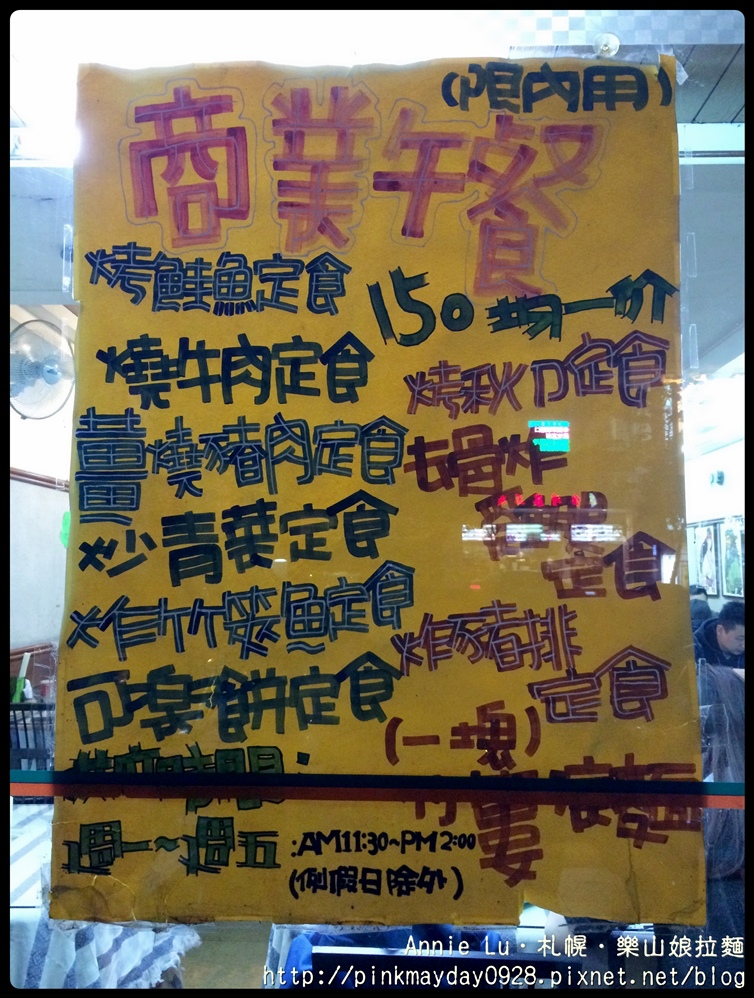 (限內用)
商業午餐
烤鮭魚定食
150均一价
燒牛肉定食
烤秋刀定食
薑燒豬肉定食
炸
定食
炒青菜定食
炸竹筴魚定食
炸豬排
定食
(一塊)
可樂餅定食
時間:
週一~週五:AM11:30~PM2:00
(例假日除外)
Annie Lu·札幌·樂山娘拉麵
http://pinkmayday0928.pixnet.net/blog